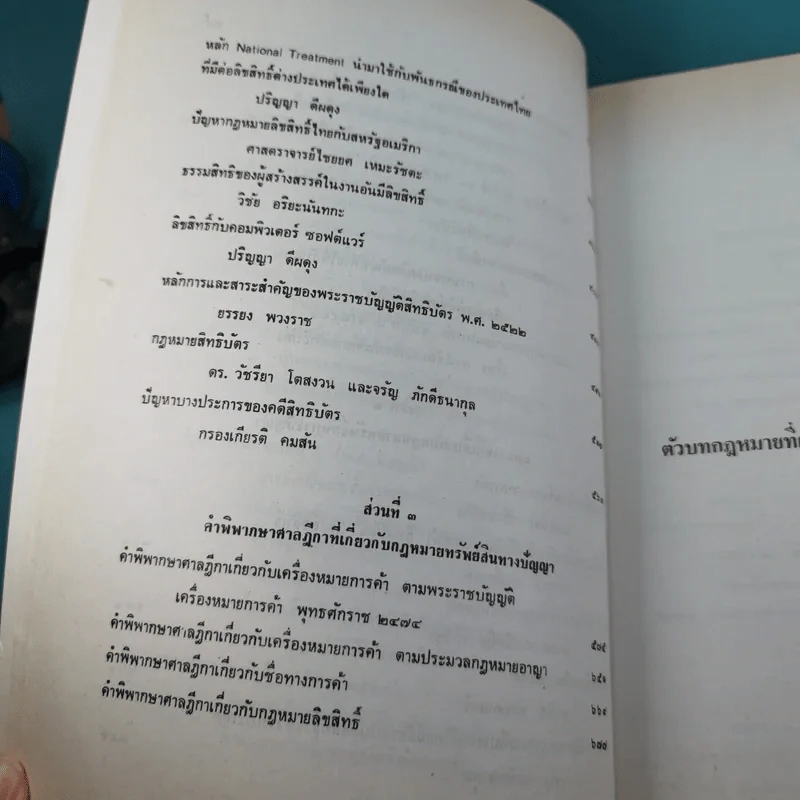 หลัก National Treatment นำมาใช้กับพันธกรณีของประเทศไทย
ที่มีต่อลิขสิทธิ์ต่างประเทศได้เพียงใด
ปริญญา ดีผดุง
ปัญหากฎหมายลิขสิทธิ์ไทยกับสหรัฐอเมริกา
ศาสตราจารย์ไชยยศ เหมะรัชตะ
ธรรมสิทธิของผู้สร้างสรรค์ในงานอันมีลิขสิทธิ์
วิชัย อริยะนันทกะ
ลิขสิทธิ์กับคอมพิวเตอร์ ซอฟต์แวร์
ปริญญา ดีผดุง
หลักการและสาระสำคัญของพระราชบัญญัติสิทธิบัตร พ.ศ. ๒๕๒๒
ยรรยง พวงราช
กฎหมายสิทธิบัตร
ดร. วัชรียา โตสงวน และจรัญ ภักดีธนากุล
ปัญหาบางประการของคดีสิทธิบัตร
กรองเกียรติ คมสัน
ส่วนที่ ๓
คำพิพากษาศาลฎีกาที่เกี่ยวกับกฎหมายทรัพย์สินทางปัญญา
คำพิพากษาศาลฎีกาเกี่ยวกับเครื่องหมายการค้า ตามพระราชบัญญัติ
เครื่องหมายการค้า พุทธศักราช ๒๔๗๔
คำพิพากษาศาลฎีกาเกี่ยวกับเครื่องหมายการค้า ตามประมวลกฎหมายอาญา
คำพิพากษาศาลฎีกาเกี่ยวกับชื่อทางการค้า
คำพิพากษาศาลฎีกาเกี่ยวกับกฎหมายลิขสิทธิ์ ๖๗๗
ตัวบทกฎหมายที่